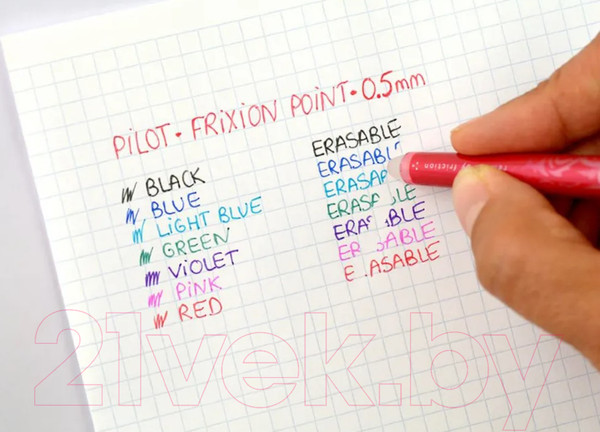 PILOT · FRIXION POINT · 0.5mm
BLACK
BLUE
LIGHT BLUE
GREEN
VIOLET
PINK
RED
ERASABLE
ERASABL
ERASAB
ERASA LE
ERA ABLE
ER SABLE
E ASABLE
friction
21vek.by